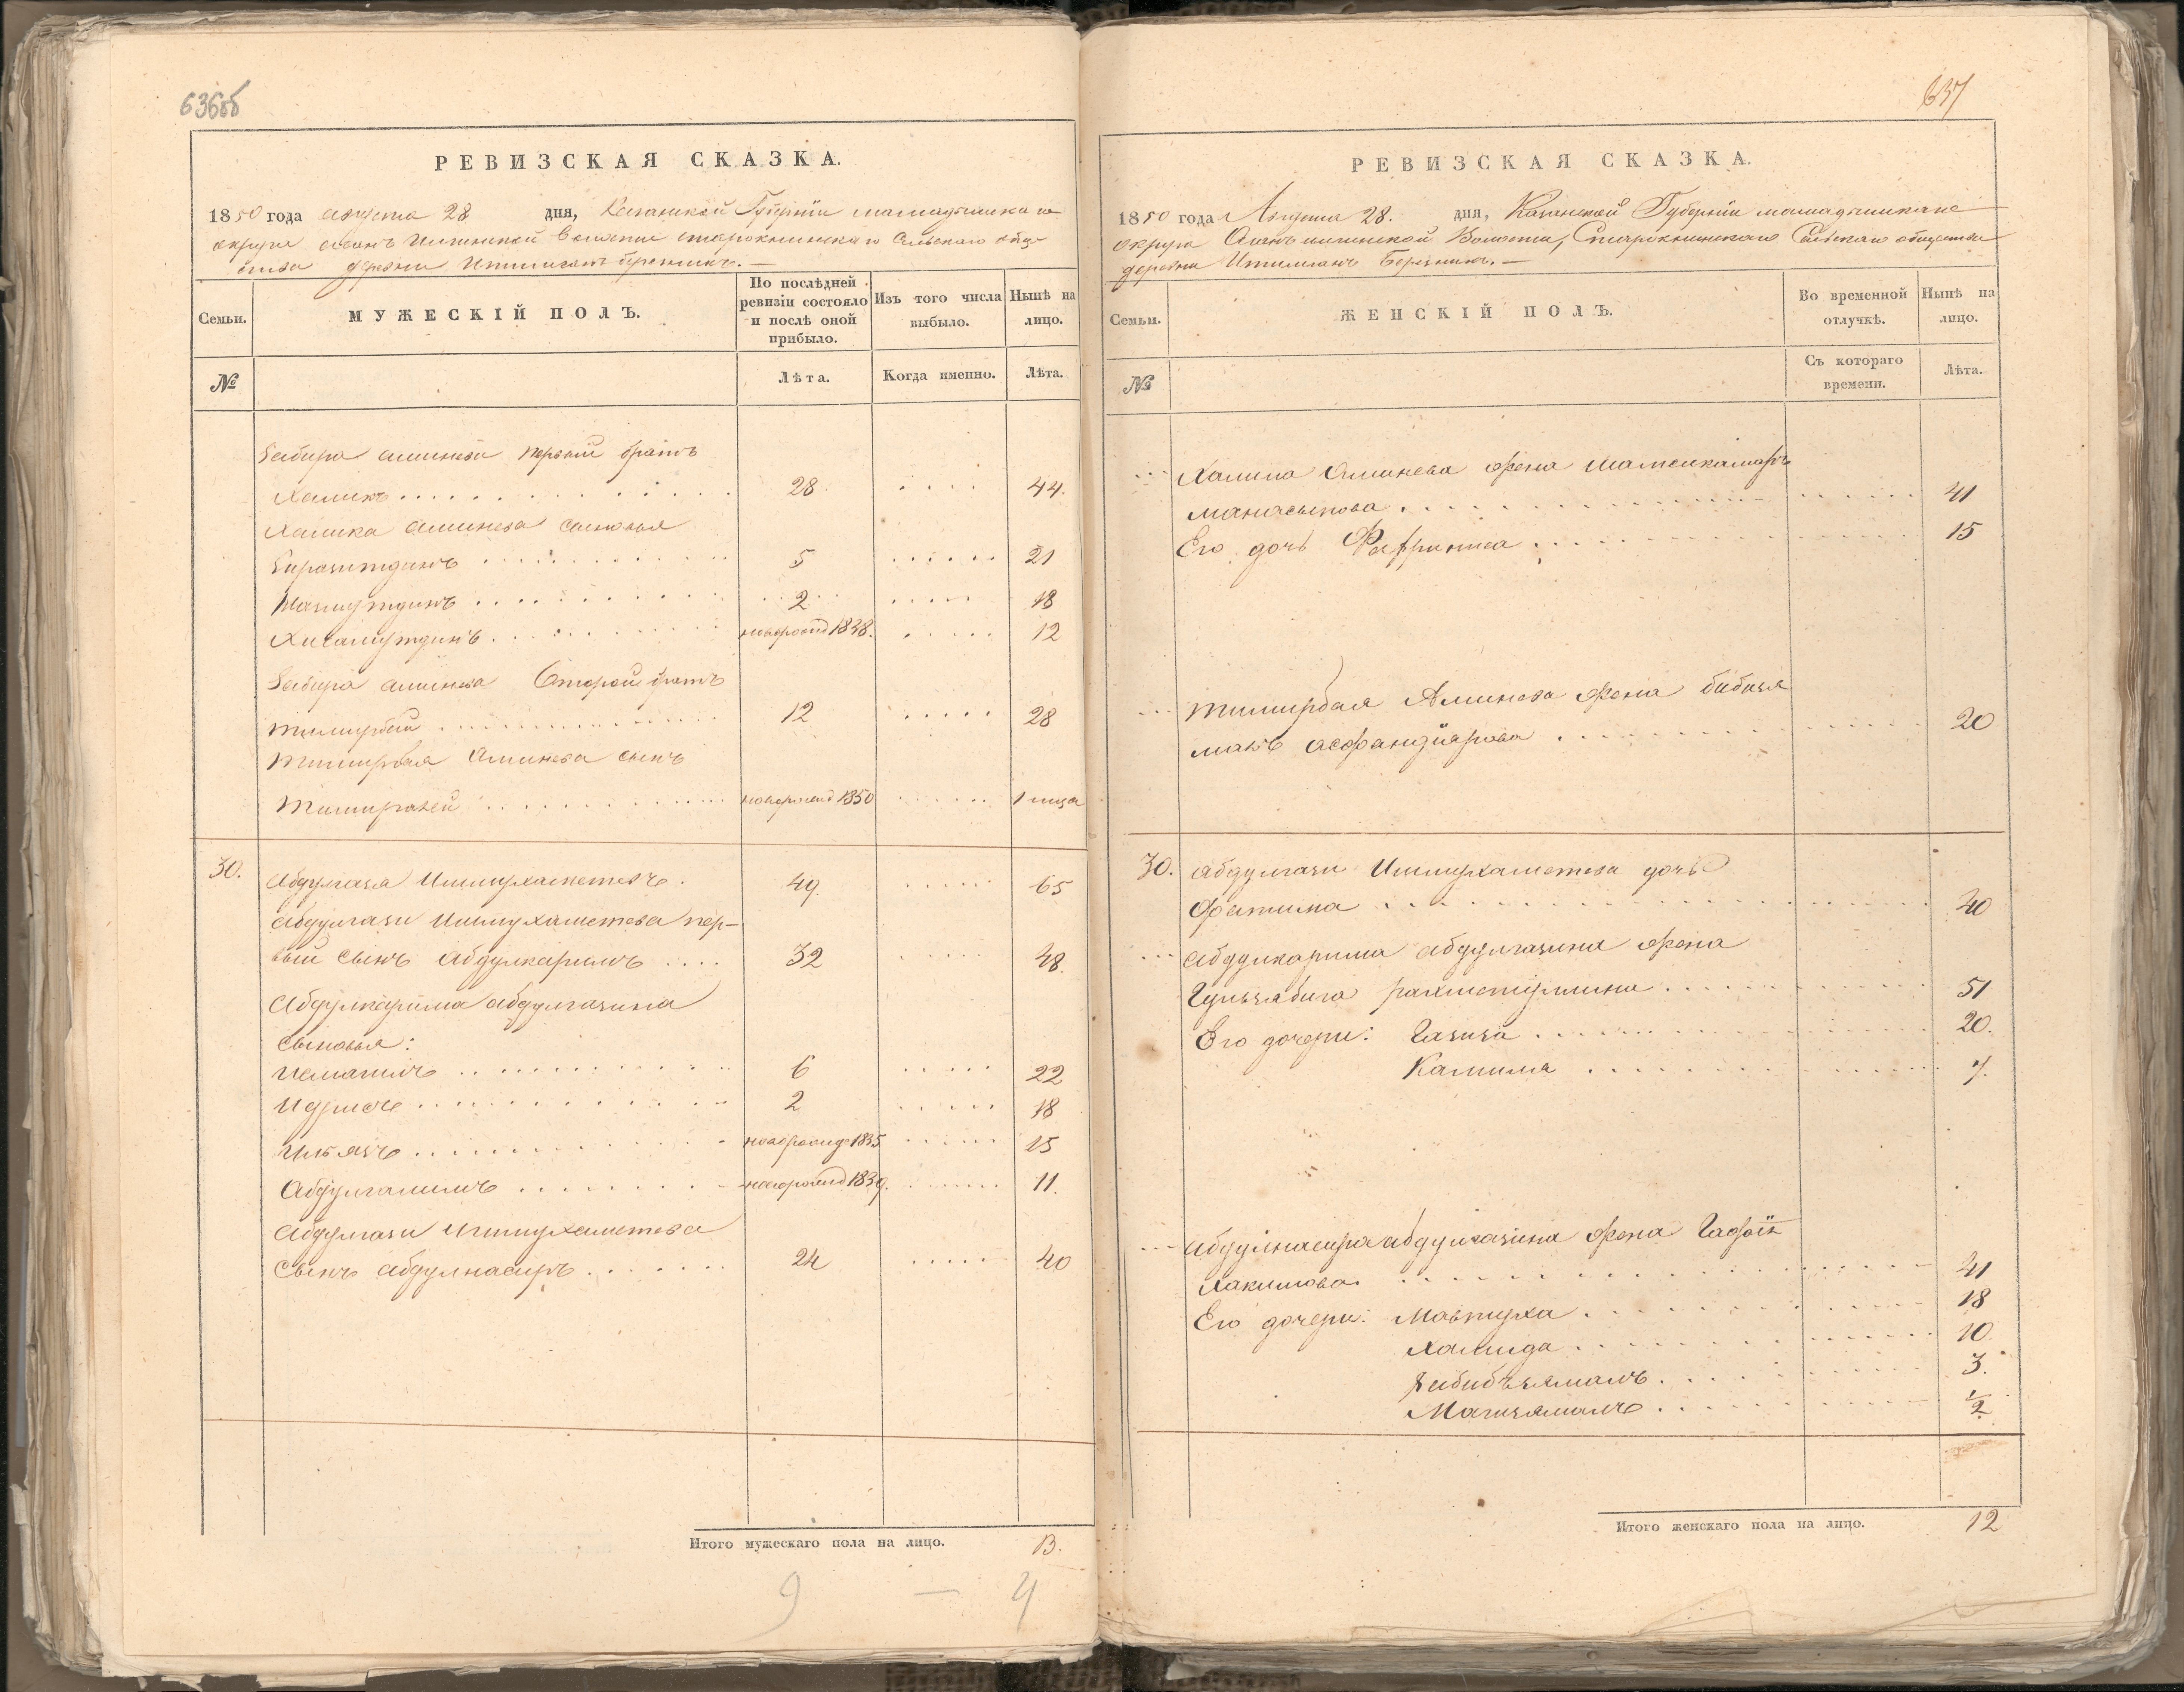 636об
РЕВИЗСКАЯ СКАЗКА.
1850 года августа 28 дня, Казанской Губернiи мамадышскаго
округа асанъ Илгинской Волости старокнинскаго Сельскаго обще-
ства деревни Ишлиганъ березникъ. —
Семьи.
МУЖЕСКIЙ ПОЛЪ.
По послѣдней ревизiи состояло и послѣ оной прибыло.
Изъ того числа выбыло.
Нынѣ на лицо.
№
Лѣта.
Когда именно.
Лѣта.
Забира аминева первый братъ
Халикъ 28 44.
Халика аминева сыновья
5 21
2 18
новорожд 1838. 12
Забира аминева Второй братъ
тимирбай 12 28
тимирбая Аминева сынъ
новорожд 1850
30. Абдулгазя Ишмухаметевъ. 49. 65
абдулгази Ишмухаметева пер-
вый сынъ Абдулкаримъ 32 48.
Абдулкарима абдулгазина
сыновья:
Исмагилъ 6 22
Идрисъ 2 18
Ильясъ новорожде 1835 15
Абдулгалимъ новорожд 1839. 11.
абдулгази Ишмухаметева
Сынъ абдулнасыръ 24 40
Итого мужескаго пола на лицо. 13.
9 — 4
637
РЕВИЗСКАЯ СКАЗКА.
1850 года Августа 28. дня, Казанской Губернiи мамадышскаго
округа Асанъ илгинской Волости, Старокнинскаго Сельскаго общества
деревни Ишлиганъ Березникъ. —
Семьи.
ЖЕНСКIЙ ПОЛЪ.
Во временной отлучкѣ.
Нынѣ на лицо.
№
Съ котораго времени.
Лѣта.
Халика Аминева жена Шамсикамаръ
манасыпова 41
Его дочь 15
тимирбая Аминева жена бибизя
малъ асфандiярова 20
30. абдулгази Ишмухаметева дочь
Фатима 40
абдулкарима абдулгазина жена
Гульзябига рахметуллина 51
Его дочери: Газиза 20.
Калима 7.
абдулнасыра абдулгазина жена
Хакимова 41
Его дочери: Мавлиха 18
Хамида 10.
Бибизямалъ 3.
Магизямалъ 1/2
Итого женскаго пола на лицо. 12